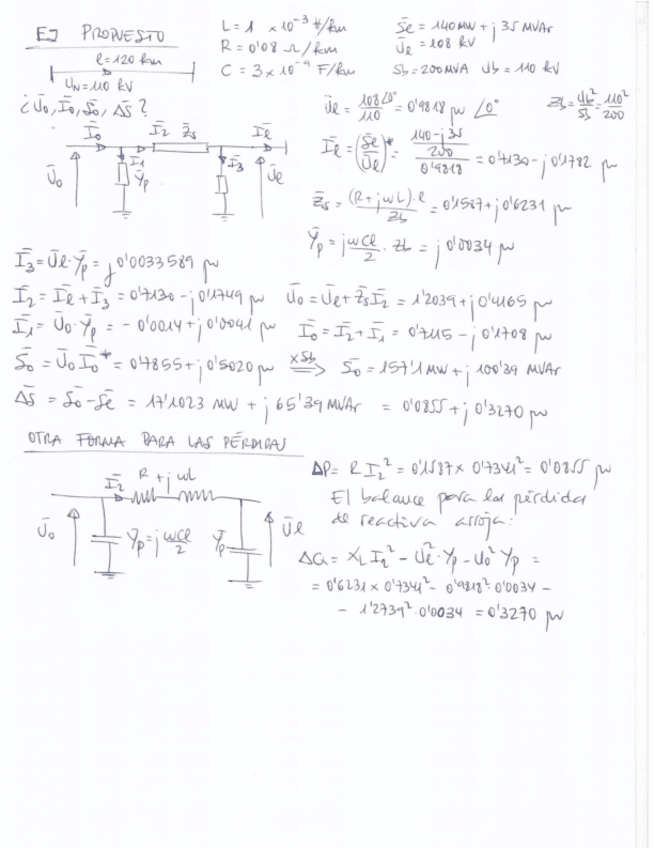 EJ PROPUESTO
L = 1 × 10⁻³ H/km
R = 0'08 Ω/km
C = 3 × 10⁻⁹ F/km
S̄e = 140 MW + j 35 MVAr
Ūe = 108 kV
Sb = 200 MVA Ub = 110 kV
l = 120 km
U_N = 110 kV
¿Ū₀, Ī₀, S̄₀, ΔS̄?
Ūe = 108∠0°/110 = 0'9818 pu ∠0°
Zb = Ub²/Sb = 110²/200
Ī₀ Ī₂ Z̄s Īe
Ū₀ Ī₁ Ȳp Ī₃ Ūe
Īe = (S̄e/Ūe)* = ((140 - j 35)/200)/0'9818 = 0'7130 - j 0'1782 pu
Z̄s = (R + jωL)·l/Zb = 0'1587 + j 0'6231 pu
Ȳp = jωCl/2 · Zb = j 0'0034 pu
Ī₃ = Ūe·Ȳp = j 0'0033589 pu
Ī₂ = Īe + Ī₃ = 0'7130 - j 0'1749 pu Ū₀ = Ūe + Z̄s Ī₂ = 1'2039 + j 0'4165 pu
Ī₁ = Ū₀·Ȳp = - 0'0014 + j 0'0041 pu Ī₀ = Ī₂ + Ī₁ = 0'7115 - j 0'1708 pu
S̄₀ = Ū₀ Ī₀* = 0'7855 + j 0'5020 pu ×Sb ⇒ S̄₀ = 157'1 MW + j 100'39 MVAr
ΔS̄ = S̄₀ - S̄e = 17'1023 MW + j 65'39 MVAr = 0'0855 + j 0'3270 pu
OTRA FORMA PARA LAS PÉRDIDAS
Ī₂ R + jωL
Ū₀ Ȳp = j ωCl/2 Ȳp Ūe
ΔP = R I₂² = 0'1587 × 0'7341² = 0'0855 pu
El balance para la pérdida
de reactiva arroja:
ΔQ = X_L I₂² - Ue²·Yp - U₀² Yp =
= 0'6231 × 0'7341² - 0'9818²·0'0034 -
- 1'2739²·0'0034 = 0'3270 pu